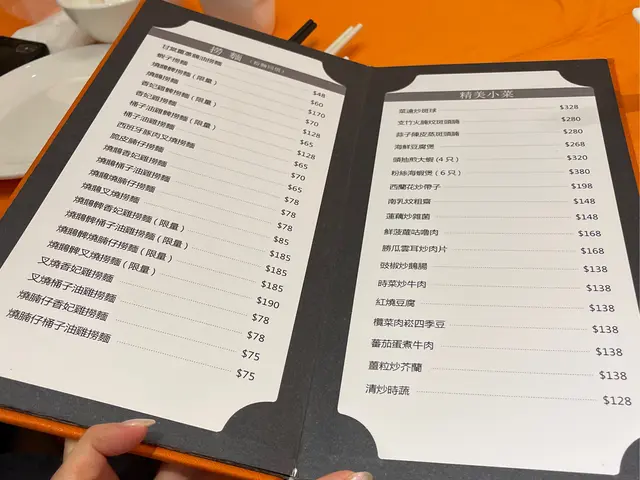 撈麵
薑葱豉油撈麵 $48
蝦子撈麵 $60
燒鵝髀撈麵 (限量) $170
燒鵝撈麵 $70
香妃雞髀撈麵 (限量) $128
香妃雞撈麵 $65
桶子油雞髀撈麵 (限量) $128
桶子油雞撈麵 $65
西班牙豚肉叉燒撈麵 $70
脆皮腩仔撈麵 $65
燒鵝香妃雞撈麵 $78
燒鵝桶子油雞撈麵 $78
燒鵝燒腩仔撈麵 $78
燒鵝叉燒撈麵 $85
燒鵝髀香妃雞撈麵 (限量) $185
燒鵝髀桶子油雞撈麵 (限量) $185
燒鵝髀燒腩仔撈麵 (限量) $185
燒鵝髀叉燒撈麵 (限量) $190
叉燒香妃雞撈麵 $78
叉燒桶子油雞撈麵 $78
燒腩仔香妃雞撈麵 $75
燒腩仔桶子油雞撈麵 $75
精美小菜
菜遠炒斑球 $328
支竹火腩炆斑頭腩 $280
蒜子陳皮蒸斑頭腩 $280
海鮮豆腐煲 $268
頭抽煎大蝦 (4 只) $320
粉絲海蝦煲 (6 只) $380
西蘭花炒帶子 $198
南乳炆粗齋 $148
蓮藕炒雜菌 $148
鮮菠蘿咕嚕肉 $168
勝瓜雲耳炒肉片 $168
豉椒炒鵝腸 $138
時菜炒牛肉 $138
紅燒豆腐 $138
欖菜肉崧四季豆 $138
蕃茄蛋煮牛肉 $138
薑粒炒芥蘭 $138
清炒時蔬 $128